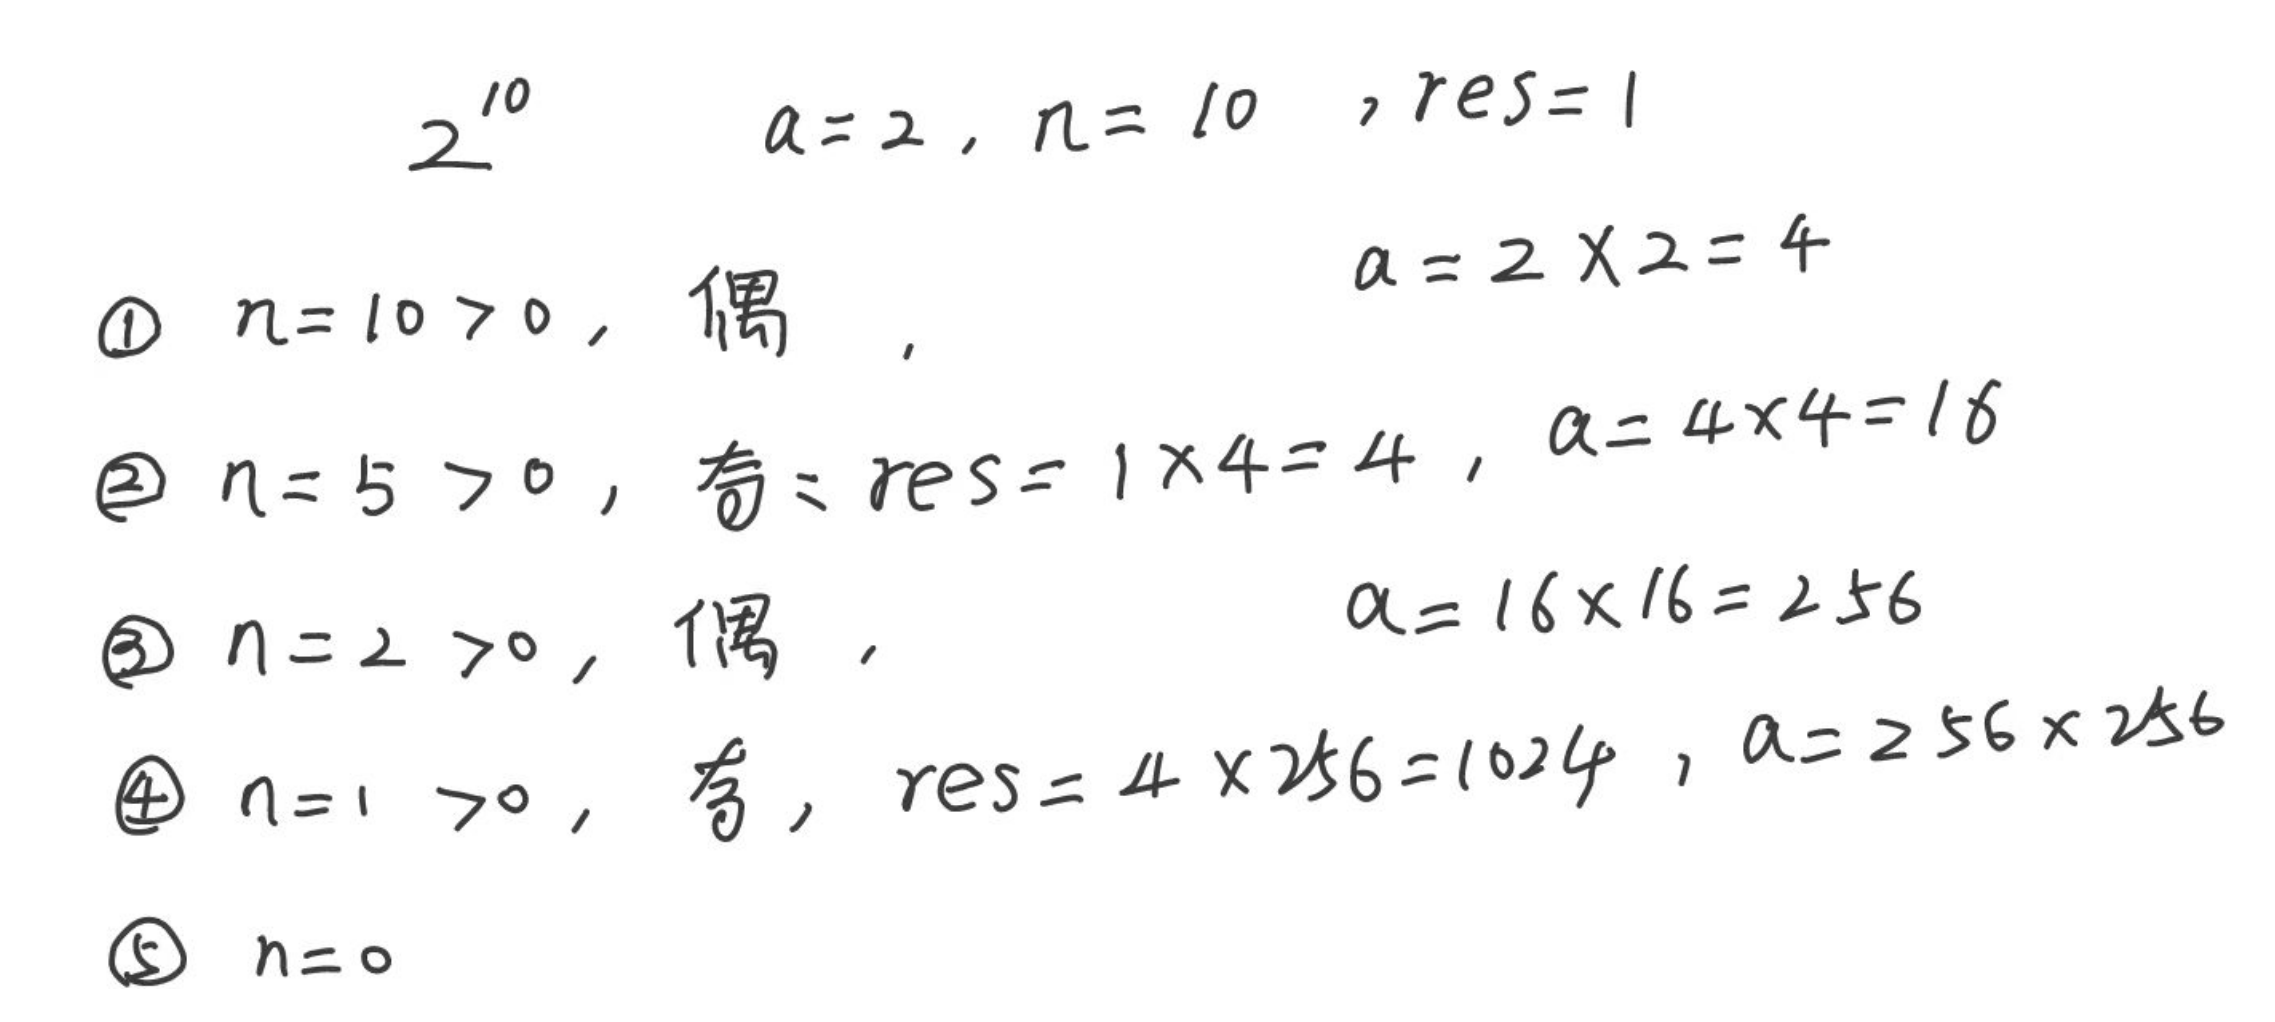 2^10 a=2, n=10, res=1
① n=10>0, 偶, a=2×2=4
② n=5>0, 奇: res=1×4=4, a=4×4=16
③ n=2>0, 偶, a=16×16=256
④ n=1>0, 奇, res=4×256=1024, a=256×256
⑤ n=0